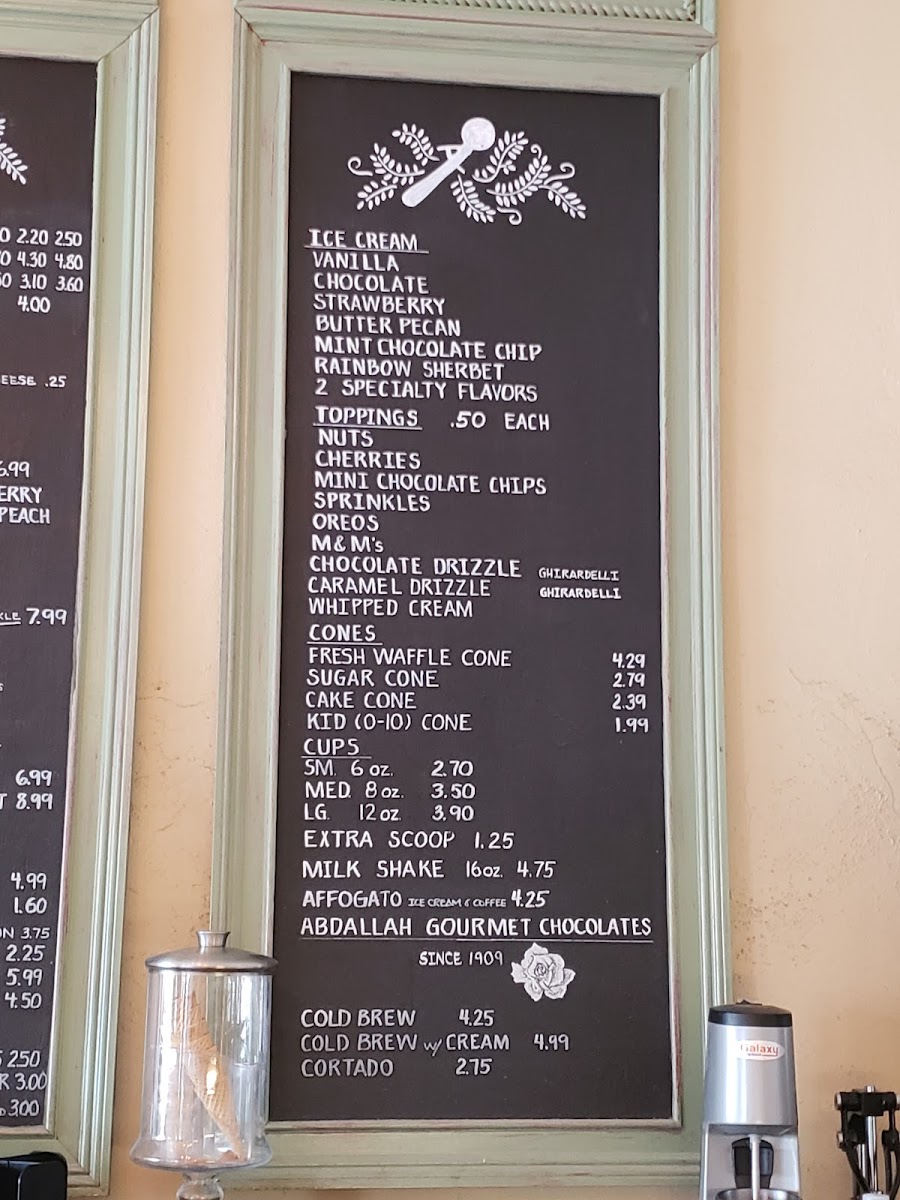 2.20 2.50
4.30 4.80
3.10 3.60
4.00
.25
6.99
PEACH
7.99
6.99
8.99
4.99
1.60
3.75
2.25
5.99
4.50
2.50
3.00
3.00
ICE CREAM
VANILLA
CHOCOLATE
STRAWBERRY
BUTTER PECAN
MINT CHOCOLATE CHIP
RAINBOW SHERBET
2 SPECIALTY FLAVORS
TOPPINGS .50 EACH
NUTS
CHERRIES
MINI CHOCOLATE CHIPS
SPRINKLES
OREOS
M&M's
CHOCOLATE DRIZZLE GHIRARDELLI
CARAMEL DRIZZLE GHIRARDELLI
WHIPPED CREAM
CONES
FRESH WAFFLE CONE 4.29
SUGAR CONE 2.79
CAKE CONE 2.39
KID (0-10) CONE 1.99
CUPS
SM. 6 oz. 2.70
MED. 8 oz. 3.50
LG. 12 oz. 3.90
EXTRA SCOOP 1.25
MILK SHAKE 16oz. 4.75
AFFOGATO ICE CREAM & COFFEE 4.25
ABDALLAH GOURMET CHOCOLATES
SINCE 1909
COLD BREW 4.25
COLD BREW w/ CREAM 4.99
CORTADO 2.75
Galaxy